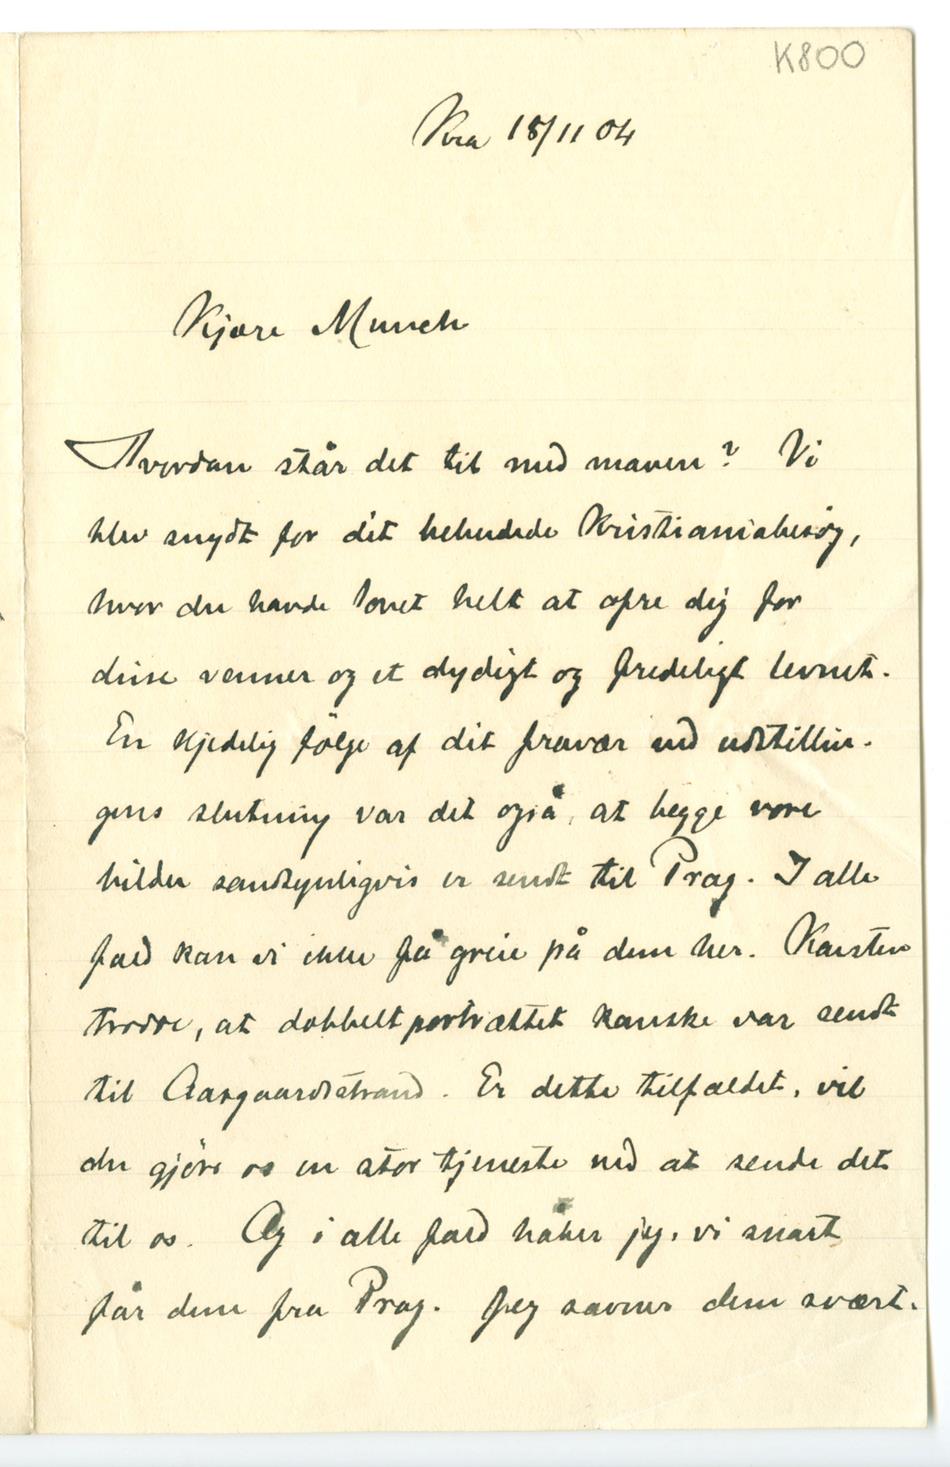 K800
Kra 18/11 04
Kjære Munch
Hvordan står det til med maven? Vi
blev snydt for dit bebudede Kristianiabesøg,
hvor du havde lovet helt at ofre dig for
dine venner og et dydigt og fredeligt levnet.
En kjedelig følge af dit fravær ved udstillin-
gens slutning var det også, at begge vore
bilder sandsynligvis er sendt til Prag. I alle
fald kan vi ikke få greie på dem her. Karsten
trodde, at dobbeltportrættet kanske var sendt
til Aasgaardstrand. Er dette tilfældet, vil
du gjøre os en stor tjeneste ved at sende det
til os. Og i alle fald håber jeg, vi snart
får dem fra Prag. Jeg savner dem svært.